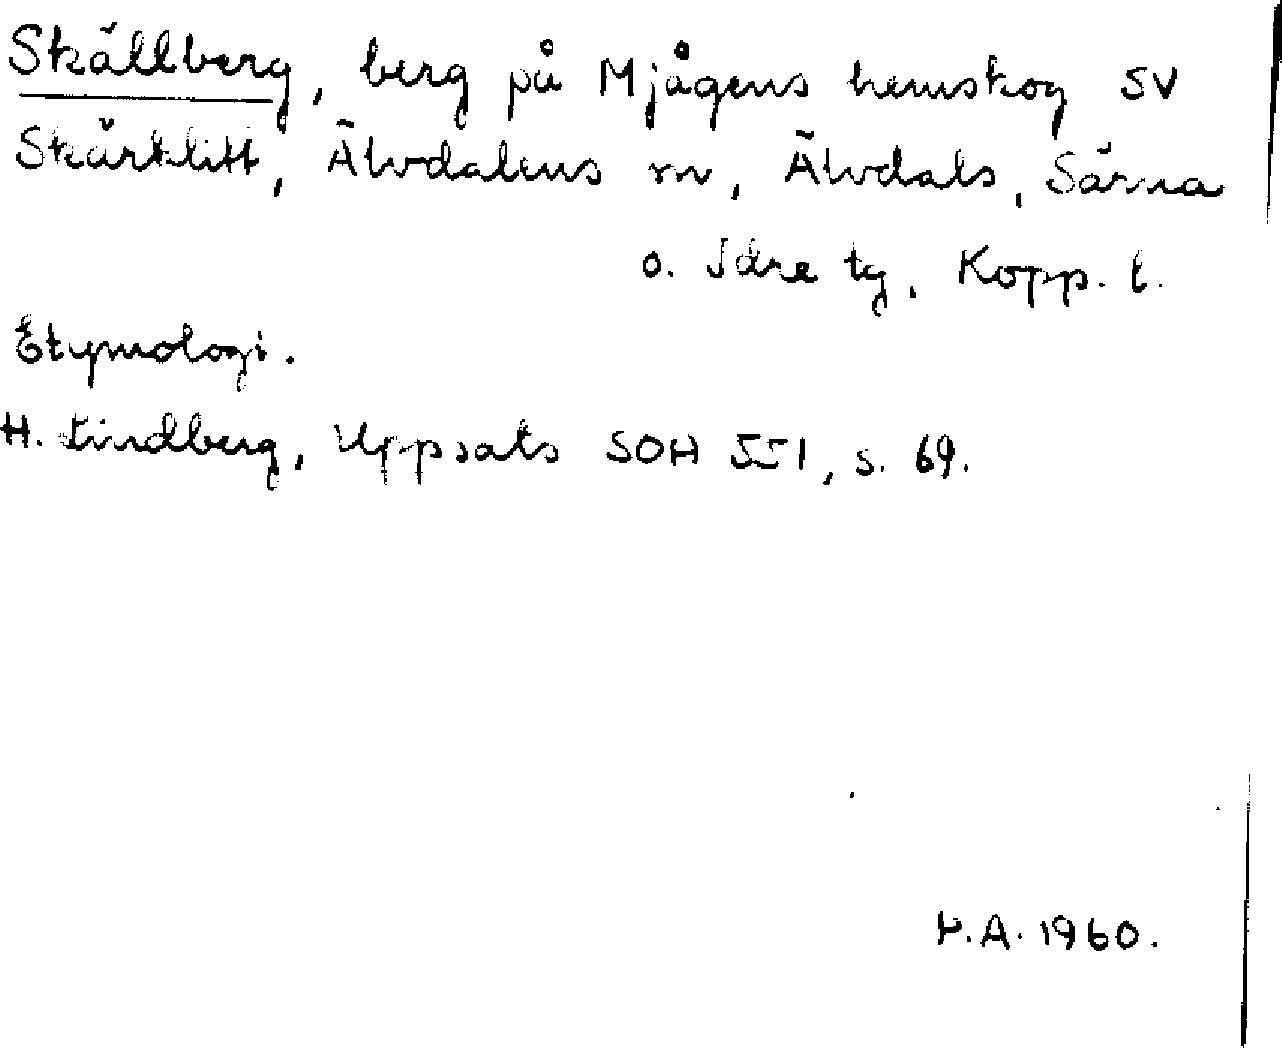 Skällberg, berg på Mjågens hemskog SV
Skärklitt, Älvdalens sn, Älvdals, Särna
o. Idre tg, Kopp. l.
Etymologi.
H. Lindberg, Uppsats SOH 551, s. 69.
H.A. 1960.